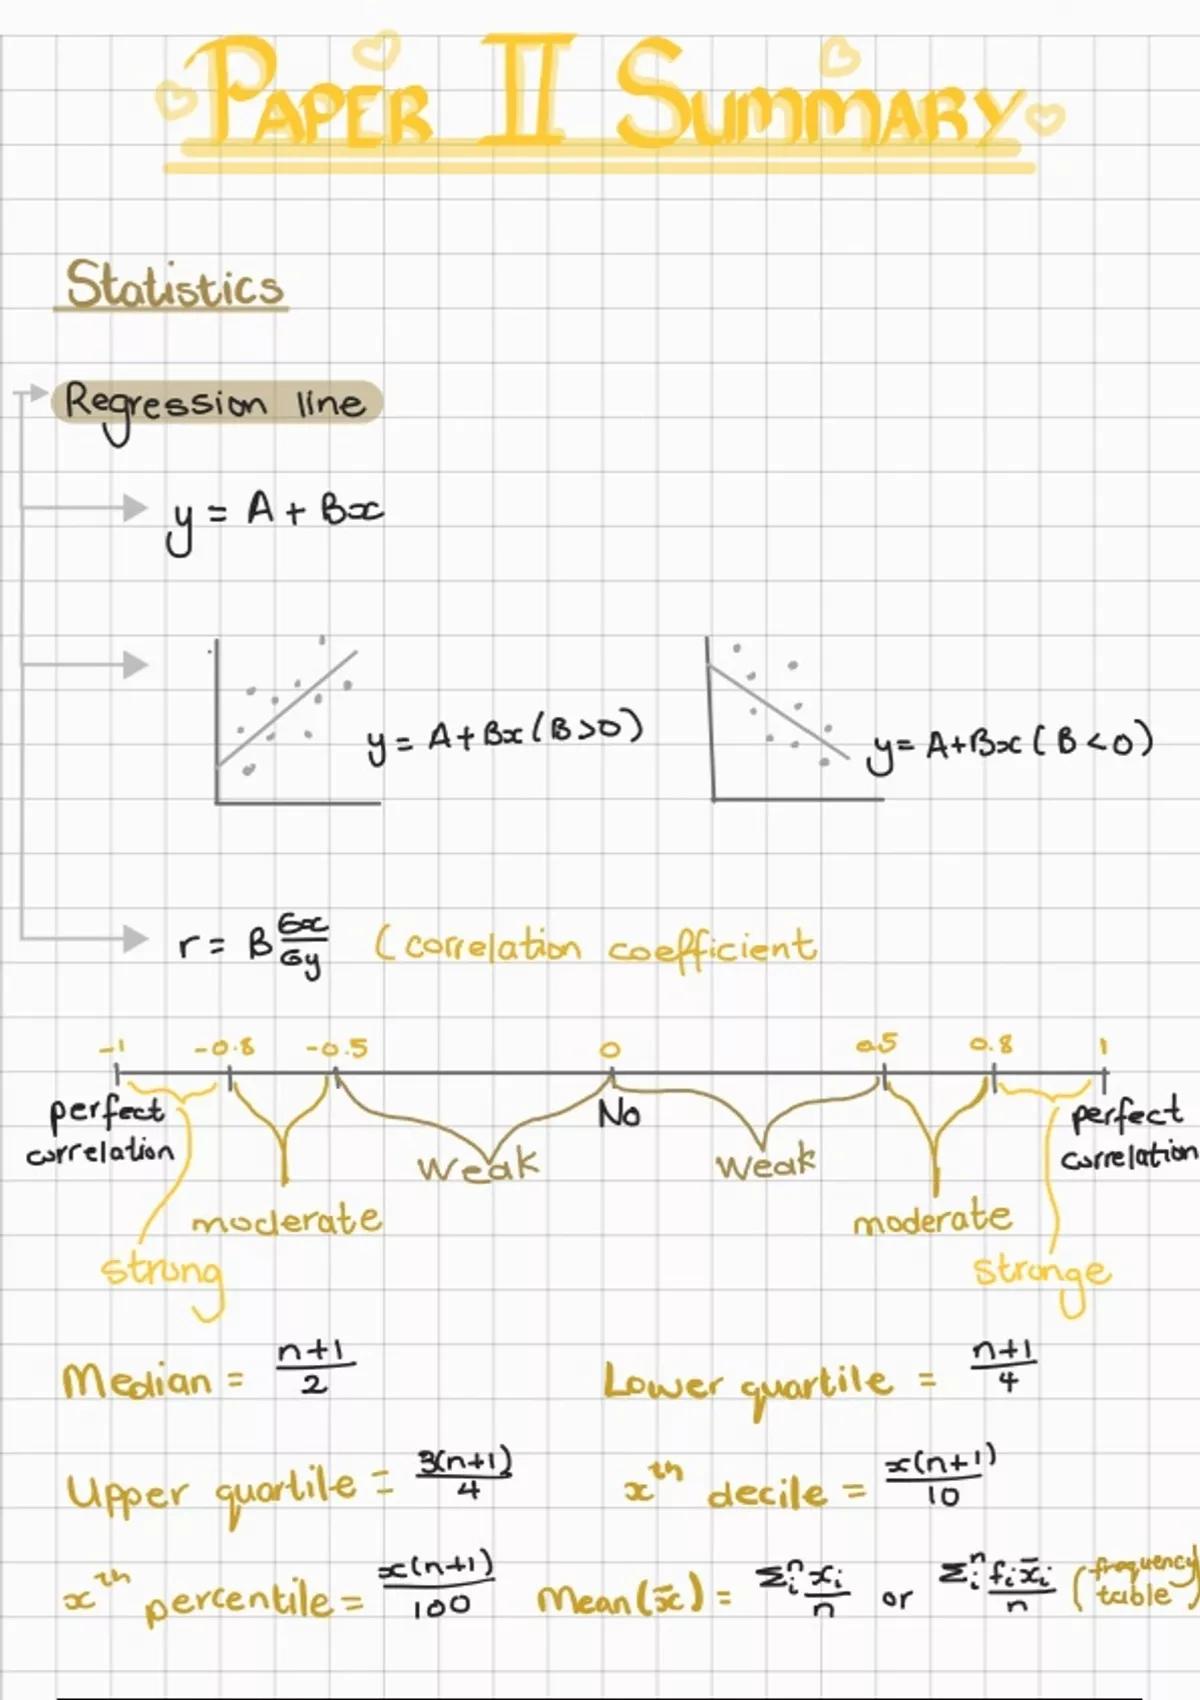 PAPER II SUMMARY
Statistics
Regression line
y = A + Bx
y = A + Bx (B > 0)
y = A + Bx ( B < 0 )
r = B σx/σy ( correlation coefficient
-1 -0.8 -0.5 0 0.5 0.8 1
perfect correlation
No
perfect correlation
weak
weak
moderate
moderate
strong
stronge
Median = n+1/2
Lower quartile = n+1/4
Upper quartile = 3(n+1)/4
xth decile = x(n+1)/10
xth percentile = x(n+1)/100
Mean (x̄) = Σᵢⁿ xᵢ/n or Σᵢⁿ fᵢx̄ᵢ/n (frequency table)